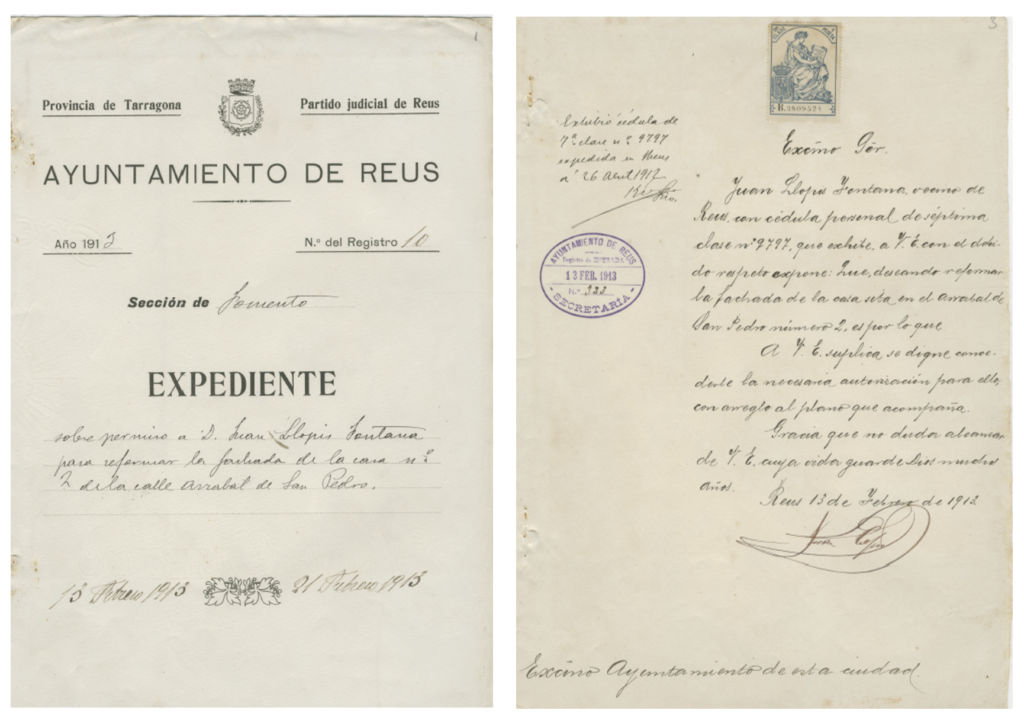 1
Provincia de Tarragona
Partido judicial de Reus
AYUNTAMIENTO DE REUS
Año 1913
N.º del Registro 10
Sección de Fomento
EXPEDIENTE
sobre permiso a D. Juan Llopis Fontana
para reformar la fachada de la casa nº
2 de la calle Arrabal de San Pedro.
13 Febrero 1913
21 Febrero 1913
3
B.3809521
Exhibió cédula de
7ª clase nº 9797
expedida en Reus
a' 26 Abril 1912
AYUNTAMIENTO DE REUS
Registro de ENTRADA
13 FEB. 1913
N.º 323
SECRETARIA
Excmo Sór.
Juan Llopis Fontana, vecino de
Reus, con cédula personal de séptima
clase nº 9797, que exhibe, a V. E. con el debi-
do respeto expone: Que, deseando reformar
la fachada de la casa sita en el Arrabal de
San Pedro número 2, es por lo que
A V. E. suplica se digne conce-
derle la necesaria autorización para ello,
con arreglo al plano que acompaña.
Gracia que no duda alcanzar
de V. E. cuya vida guarde Dios muchos
años.
Reus 13 de Febrero de 1913
Juan Llopis
Excmo Ayuntamiento de esta ciudad.